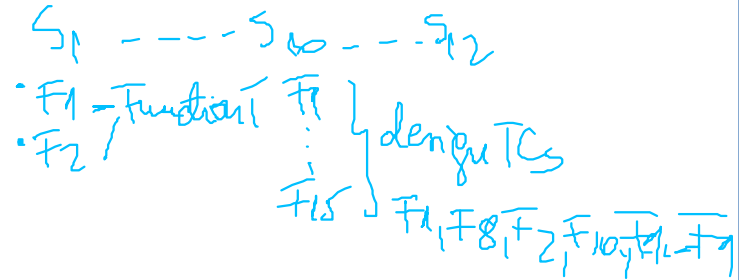 S1 ----- S10 ---- S12
F1 - Function1 F1
F2
F15
design TCs
F1, F8, F2, F10,